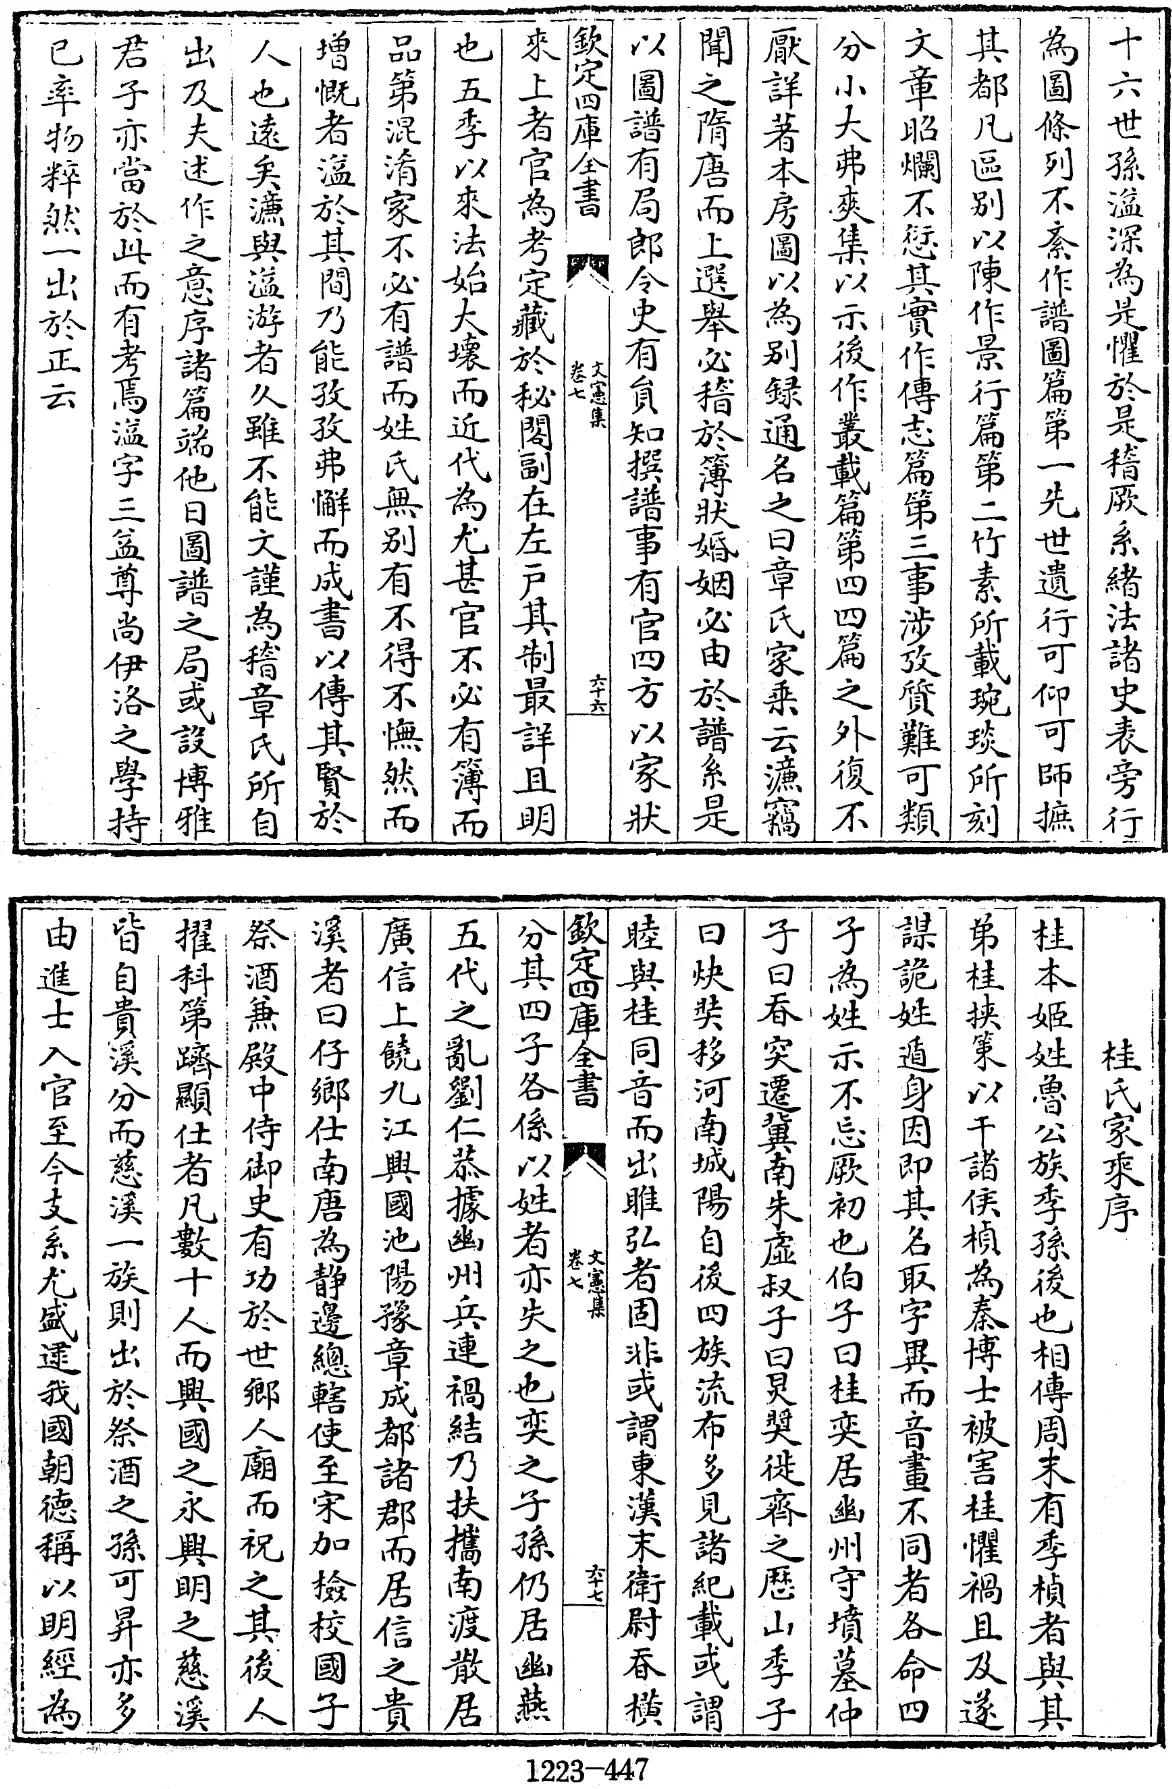 十六世孫溢深為是懼於是稽厥系緒法諸史表旁行
為圖條列不紊作譜圖篇第一先世遺行可仰可師摭
其都凡區别以陳作景行篇第二竹素所載琬琰所刻
文章昭爛不愆其實作傳志篇第三事涉攷質難可類
分小大弗爽集以示後作叢載篇第四四篇之外復不
厭詳著本房圖以為别録通名之曰章氏家乗云濂竊
聞之隋唐而上選舉必稽於簿狀婚姻必由於譜系是
以圖譜有局郎令史有負知撰譜事有官四方以家狀
欽定四庫全書
文憲集
卷七
六十六
來上者官為考定藏於秘閣副在左户其制最詳且明
也五季以來法始大壞而近代為尤甚官不必有簿而
品第混淆家不必有譜而姓氏無别有不得不憮然而
增慨者溢於其間乃能孜孜弗懈而成書以傳其賢於
人也遠矣濂與溢游者久雖不能文謹為稽章氏所自
出及夫述作之意序諸篇端他日圖譜之局或設博雅
君子亦當於此而有考焉溢字三益尊尚伊洛之學持
已率物粹然一出於正云
桂氏家乗序
桂本姬姓魯公族季孫後也相傳周末有季楨者與其
弟桂挾策以干諸侯楨為秦博士被害桂懼禍且及遂
謀詭姓遁身因即其名取字異而音畫不同者各命四
子為姓示不忘厥初也伯子曰桂奕居幽州守墳墓仲
子曰昋突遷冀南朱虚叔子曰炅奬徙齊之歴山季子
曰炔奘移河南城陽自後四族流布多見諸紀載或謂
眭與桂同音而出眭弘者固非或謂東漢末衛尉昋横
欽定四庫全書
文憲集
卷七
六十七
分其四子各係以姓者亦失之也奕之子孫仍居幽燕
五代之亂劉仁恭據幽州兵連禍結乃扶攜南渡散居
廣信上饒九江興國池陽豫章成都諸郡而居信之貴
溪者曰仔鄉仕南唐為静邊總轄使至宋加檢校國子
祭酒兼殿中侍御史有功於世鄉人廟而祝之其後人
擢科第躋顯仕者凡數十人而興國之永興明之慈溪
皆自貴溪分而慈溪一族則出於祭酒之孫可昇亦多
由進士入官至今支系尤盛逮我國朝德稱以明經為
1223—447